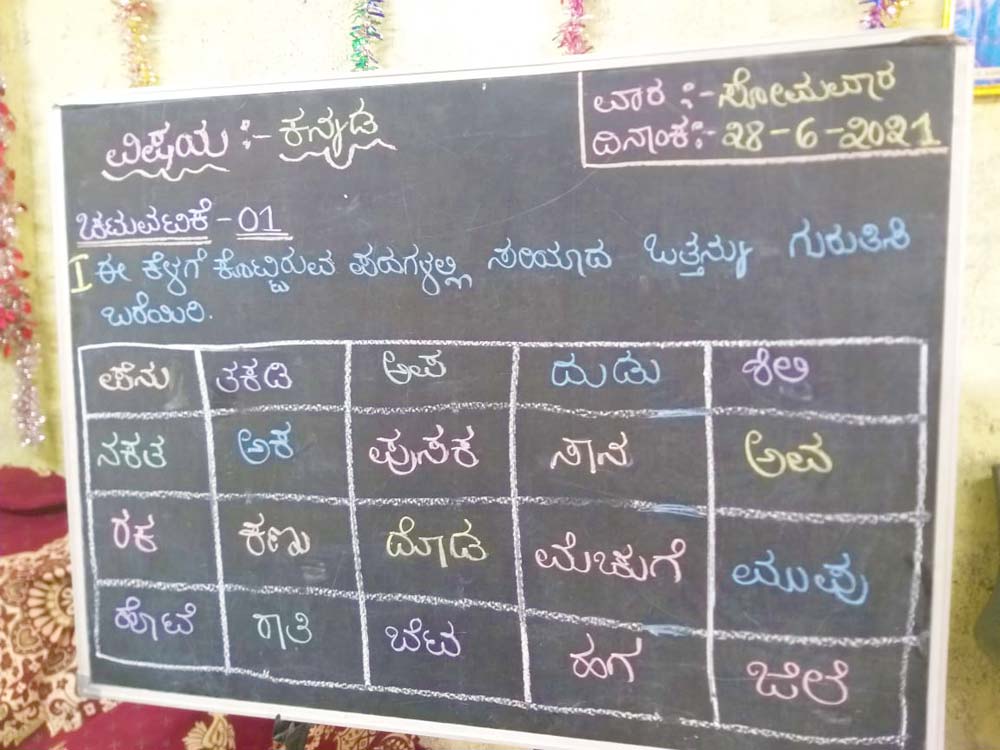 ವಾರ :- ಸೋಮವಾರ
ವಿಷಯ :- ಕನ್ನಡ
ದಿನಾಂಕ:- 28-6-2021
ಚಟುವಟಿಕೆ - 01
I ಈ ಕೆಳಗೆ ಕೊಟ್ಟಿರುವ ಪದಗಳಲ್ಲಿ ಸರಿಯಾದ ಒತ್ತನ್ನು ಗುರುತಿಸಿ
ಬರೆಯಿರಿ.
ಪೆನು ತಕಡಿ ಅಪ ದುಡು ಶಿಲಿ
ನಕತ ಅಕ ಪುಸಕ ಸಾನ ಅವ
ರಕ ಕಣು ದೊಡ ಮೆಚುಗೆ ಮುಪು
ಹೊಟೆ ರಾತಿ ಬೆಟ ಹಗ ಜಿಲೆ